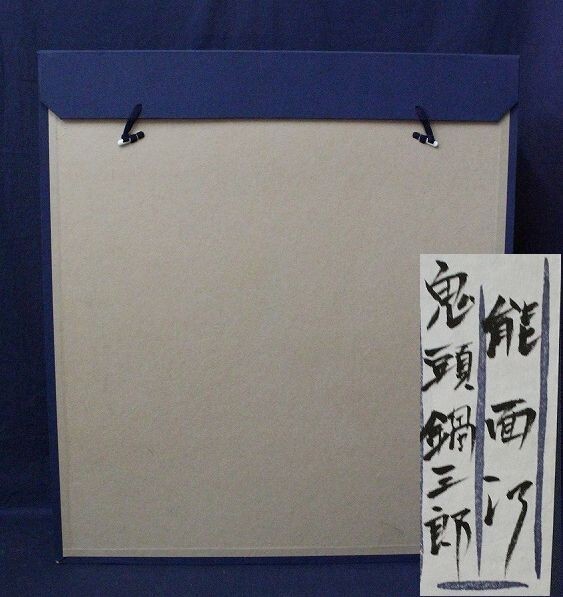 能面
鬼頭鍋三郎